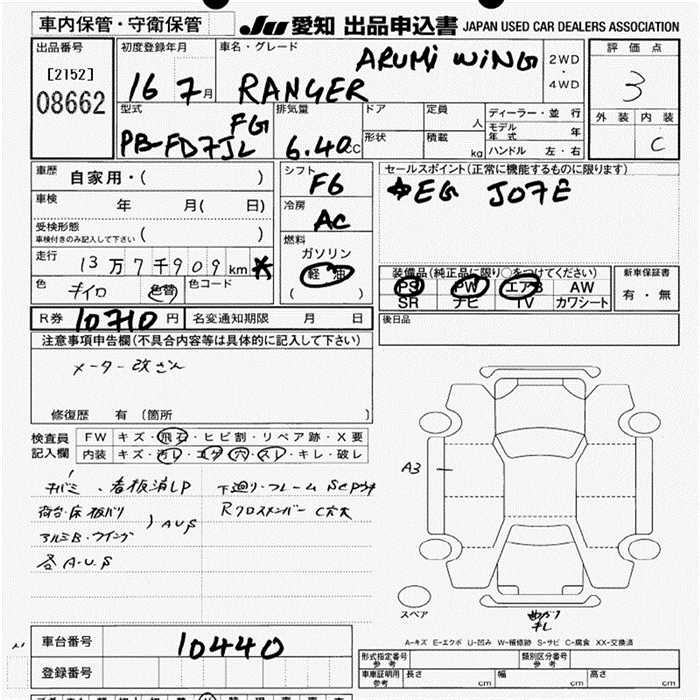 車内保管・守衛保管
JU 愛知 出品申込書 JAPAN USED CAR DEALERS ASSOCIATION
出品番号
[2152]
08662
初度登録年月
16 7月
車名・グレード
ARUMi WiNG
RANGER
2WD
・
4WD
評価点
3
外装 内装
C
型式
FG
PB-FD7JL
排気量
6.40cc
ドア
形状
定員
人
積載
kg
ディーラー・並行
モデル年式 年
ハンドル 左・右
車歴
自家用・( )
車検
年 月( 日)
受検形態
車検付きのみ記入して下さい ( )
走行
13万7千909km *
色
キイロ
色替
色コード
シフト
F6
冷房
AC
燃料
ガソリン
軽油
( )
セールスポイント(正常に機能するものに限ります)
EG J07E
装備品(純正品に限り○をつけてください)
PS PW エアB AW
SR ナビ TV カワシート
新車保証書
有・無
R券 10710円 名変通知期限 月 日
後日品
注意事項申告欄(不具合内容等は具体的に記入して下さい)
メーター改ざん
修復歴 有 〔箇所 〕
検査員
記入欄
FW キズ・飛石・ヒビ割・リペア跡・X要
内装 キズ・汚レ・コゲ・穴・スレ・キレ・破レ
キバミ、看板消しP
下廻り・フレーム
荷台・床板バリ
Rクロスメンバー C大
アルミB・ウイング
AUS
各A・U・S
A3
スペア
A-キズ E-エクボ U-凹み W-補修跡 S-サビ C-腐食 XX-交換済
車台番号
10440
登録番号
形式指定番号
参考
類別区分番号
参考
車車証明用
参考
長さ cm
幅 cm
高さ cm